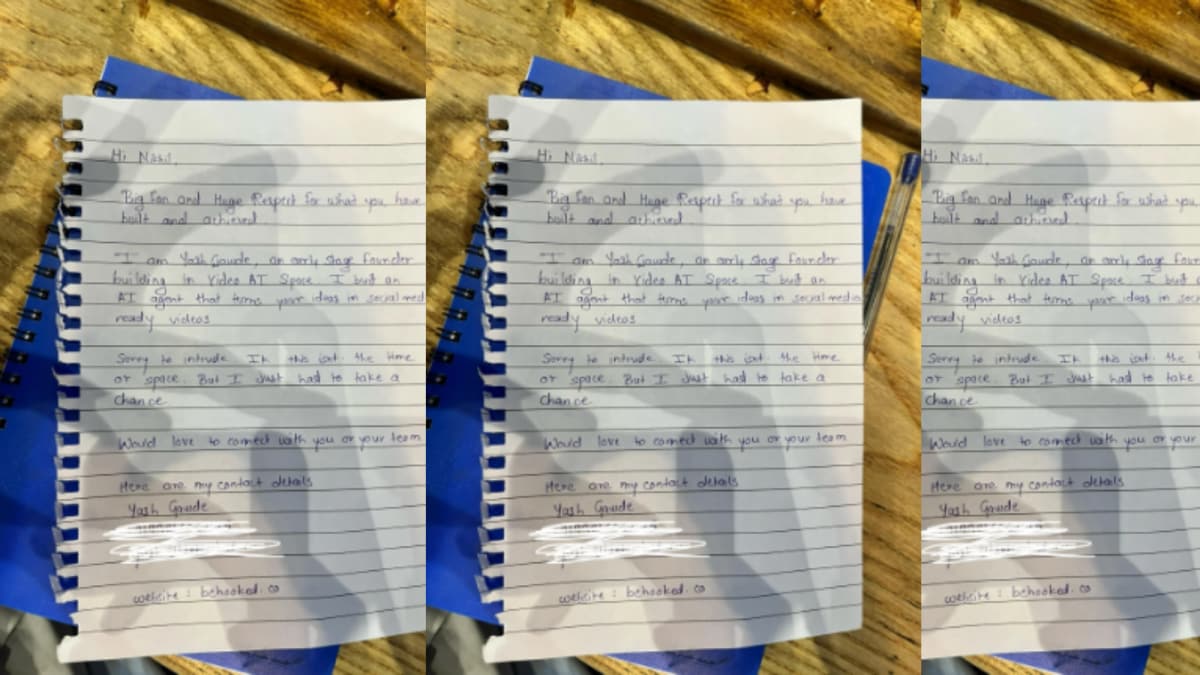 Hi Nasil,
Big fan and Huge Respect for what you have
built and achieved
I am Yash Gawde, an early stage founder
building in Video AI Space. I built an
AI agent that turns your ideas in social med
ready videos
Sorry to intrude. If this isnt the time
or space. But I Just had to take a
Chance
Would love to connect with you or your team
Here are my contact details
Yash Gawde
website : behooked.co
Hi Nasil,
Big fan and Huge Respect for what you have
built and achieved
I am Yash Gawde, an early stage founder
building in Video AI Space. I built an
AI agent that turns your ideas in social media
ready videos
Sorry to intrude. If this isnt the time
or space. But I Just had to take a
Chance
Would love to connect with you or your team
Here are my contact details
Yash Gawde
website : behooked.co
Hi Nasil,
Big fan and Huge Respect for what you
built and achieved
I am Yash Gawde, an early stage foun
building in Video AI Space. I built
AI agent that turns your ideas in soc
ready videos
Sorry to intrude. If this isnt the
or space. But I Just had to take
Chance
Would love to connect with you or your
Here are my contact details
Yash Gawde
website : behooked.co